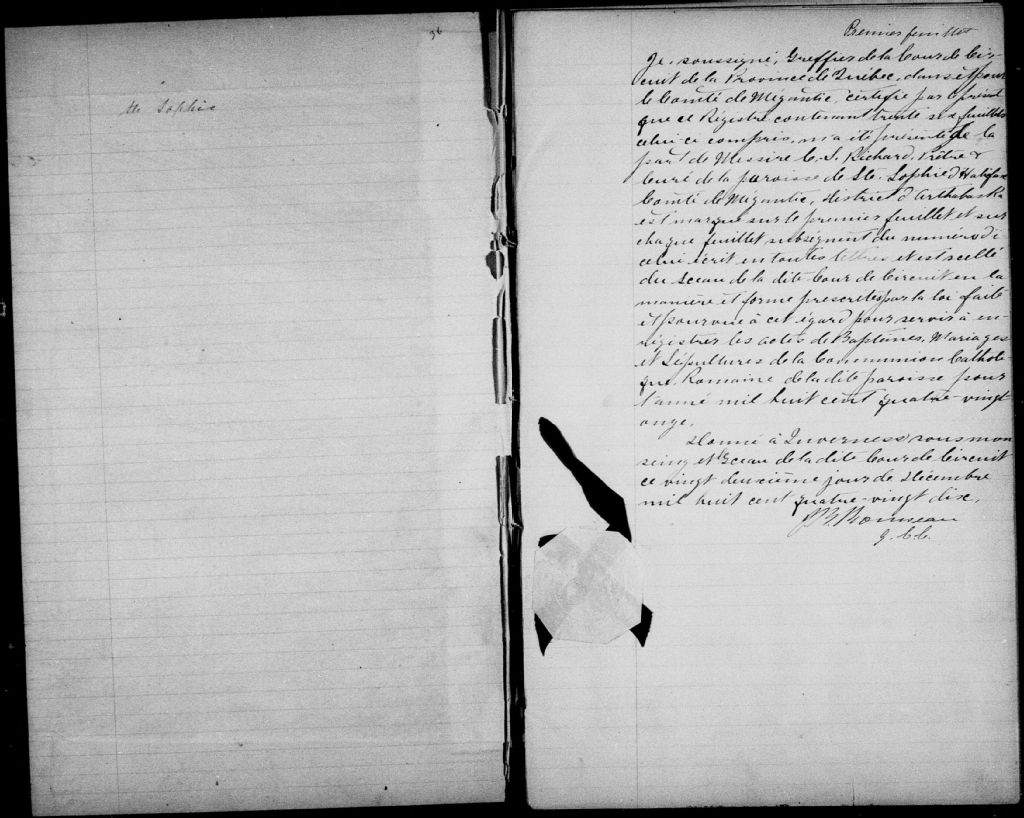 36
Ste Sophie
Premier feuillet
Je, soussigné, Greffier de la Cour de Cir-
cuit de la Province de Québec, dans et pour
le Comté de Mégantic, certifie par le présent
que ce Régistre contenant trente six feuillets
celui-ci compris, m'a été présenté de la
part de Messire C. S. Richard, Prêtre &
Curé de la paroisse de Ste. Sophie d'Halifax
Comté de Mégantic, District d'Arthabaska
est marqué sur le premier feuillet et sur
chaque feuillet subséquent du numéro d'i
celui écrit en toutes lettres et est scellé
du sceau de la dite Cour de Circuit en la
manière et forme prescrites par la loi faite
et pourvue à cet égard pour servir à en-
régistrer les actes de Baptêmes, Mariages
et Sépultures de la Communion Catholi-
que Romaine de la dite paroisse pour
l'anné mil huit cent quatre-vingt
onze.
Donné à Inverness sous mon
seing et le sceau de la dite Cour de Circuit
ce vingt deuxième jour de Décembre
mil huit cent quatre-vingt dix.
Rousseau
g. C. C.